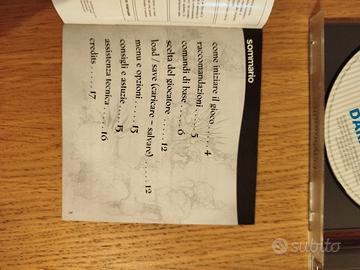 sommario
come iniziare il gioco . . . . . 4
raccomandazioni . . . . . 5
comandi di base . . . . . 6
scelta del giocatore . . . . . 12
load / save (caricare – salvare) . . . . . 12
menu e opzioni . . . . . 13
consigli e astuzie . . . . . 15
assistenza tecnica . . . . . 16
credits . . . . . 17
DAR
subito